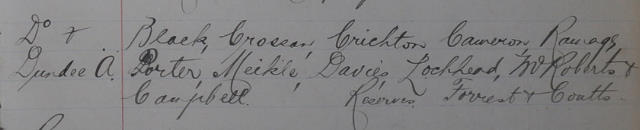 Do & Black, Crossan, Crichton Cameron, Ramage,
Dundee A. Porter, Meikle, Davies, Lochhead, McRoberts &
Campbell. Reserves Forrest & Coutts.